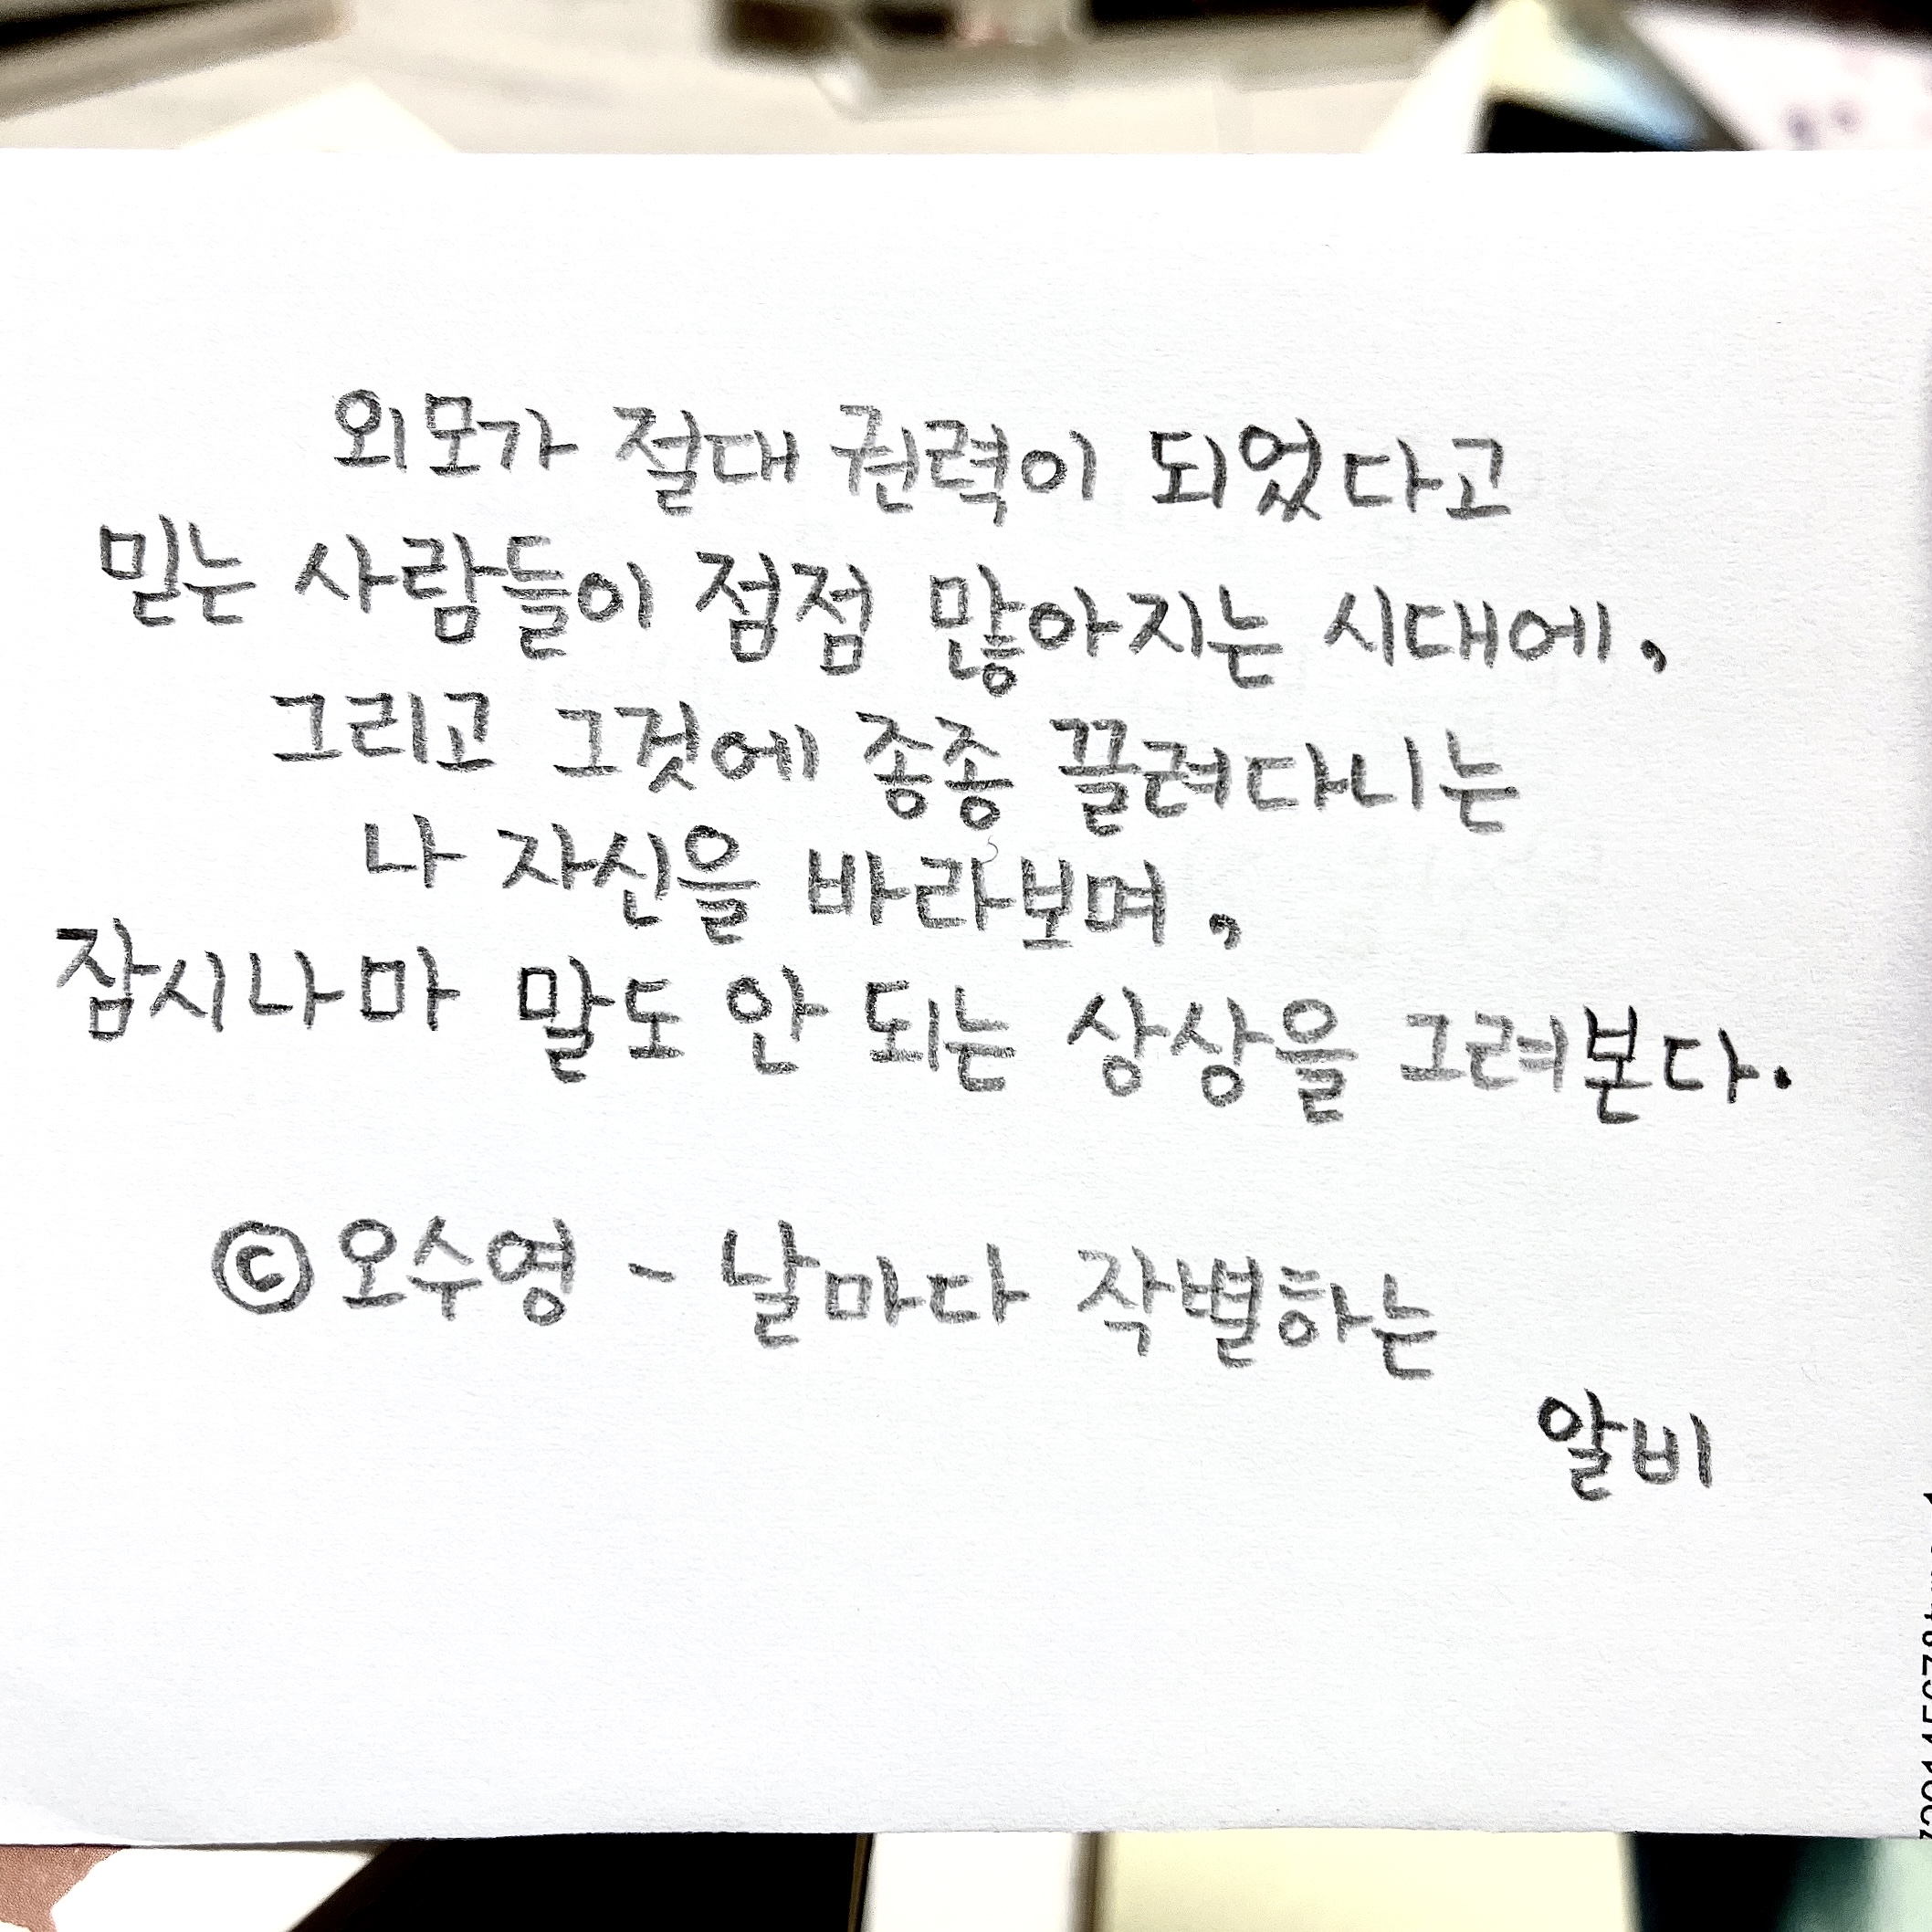 외모가 절대 권력이 되었다고
믿는 사람들이 점점 많아지는 시대에,
그리고 그것에 종종 끌려다니는
나 자신을 바라보며,
잠시나마 말도 안 되는 상상을 그려본다.
©오수영 - 날마다 작별하는
알비